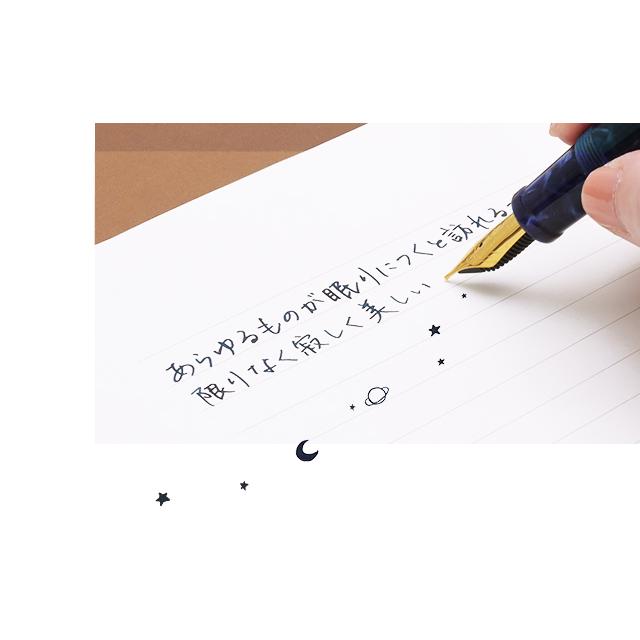 あらゆるものが眠りにつくと訪れる
限りなく寂しく美しい